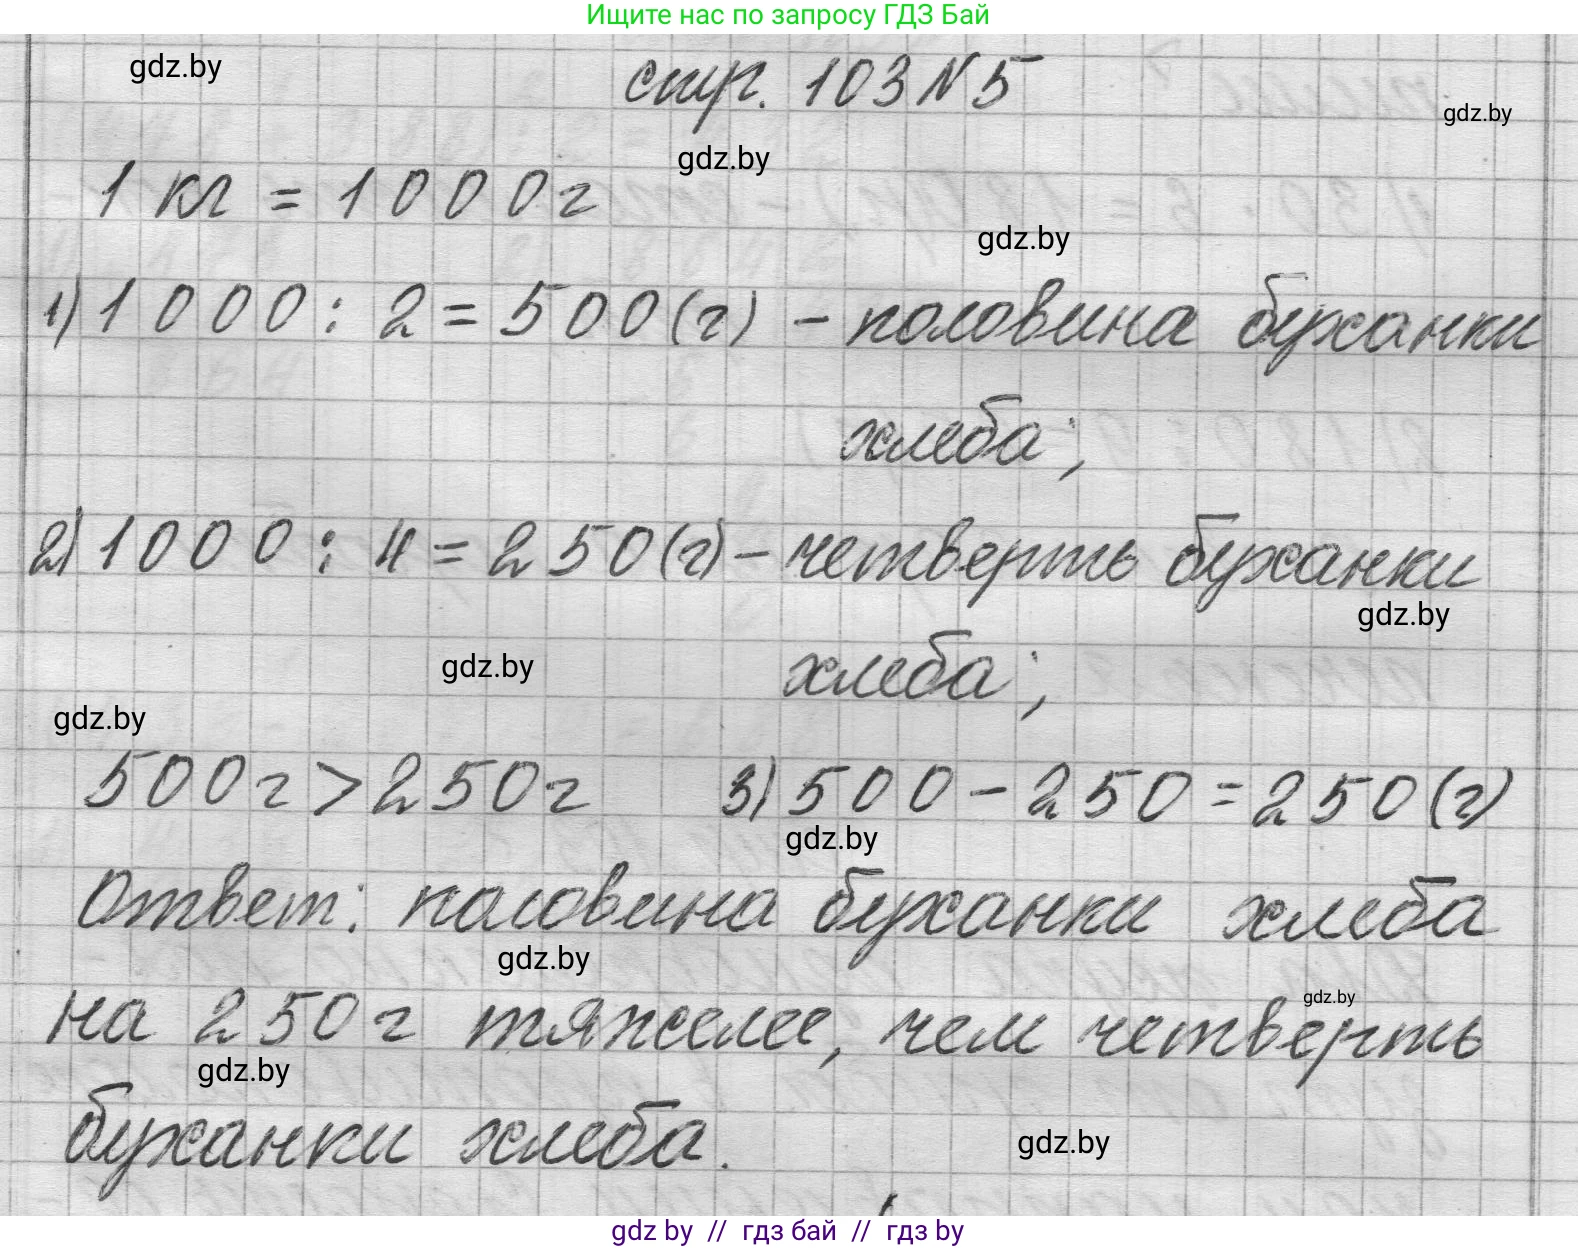 Ищите нас по запросу ГДЗ Бай
gdz.by
стр. 103 N 5
gdz.by
gdz.by
1 кг = 1000г
gdz.by
1) 1000 : 2 = 500 (г) - половина буханки
хлеба;
2) 1000 : 4 = 250 (г) - четверть буханки
gdz.by
хлеба;
gdz.by
gdz.by
500г > 250г 3) 500 - 250 = 250 (г)
gdz.by
Ответ: половина буханки хлеба
gdz.by
на 250 г тяжелее, чем четверть
gdz.by
gdz.by
буханки хлеба.
gdz.by
gdz by // гдз бай // гдз by